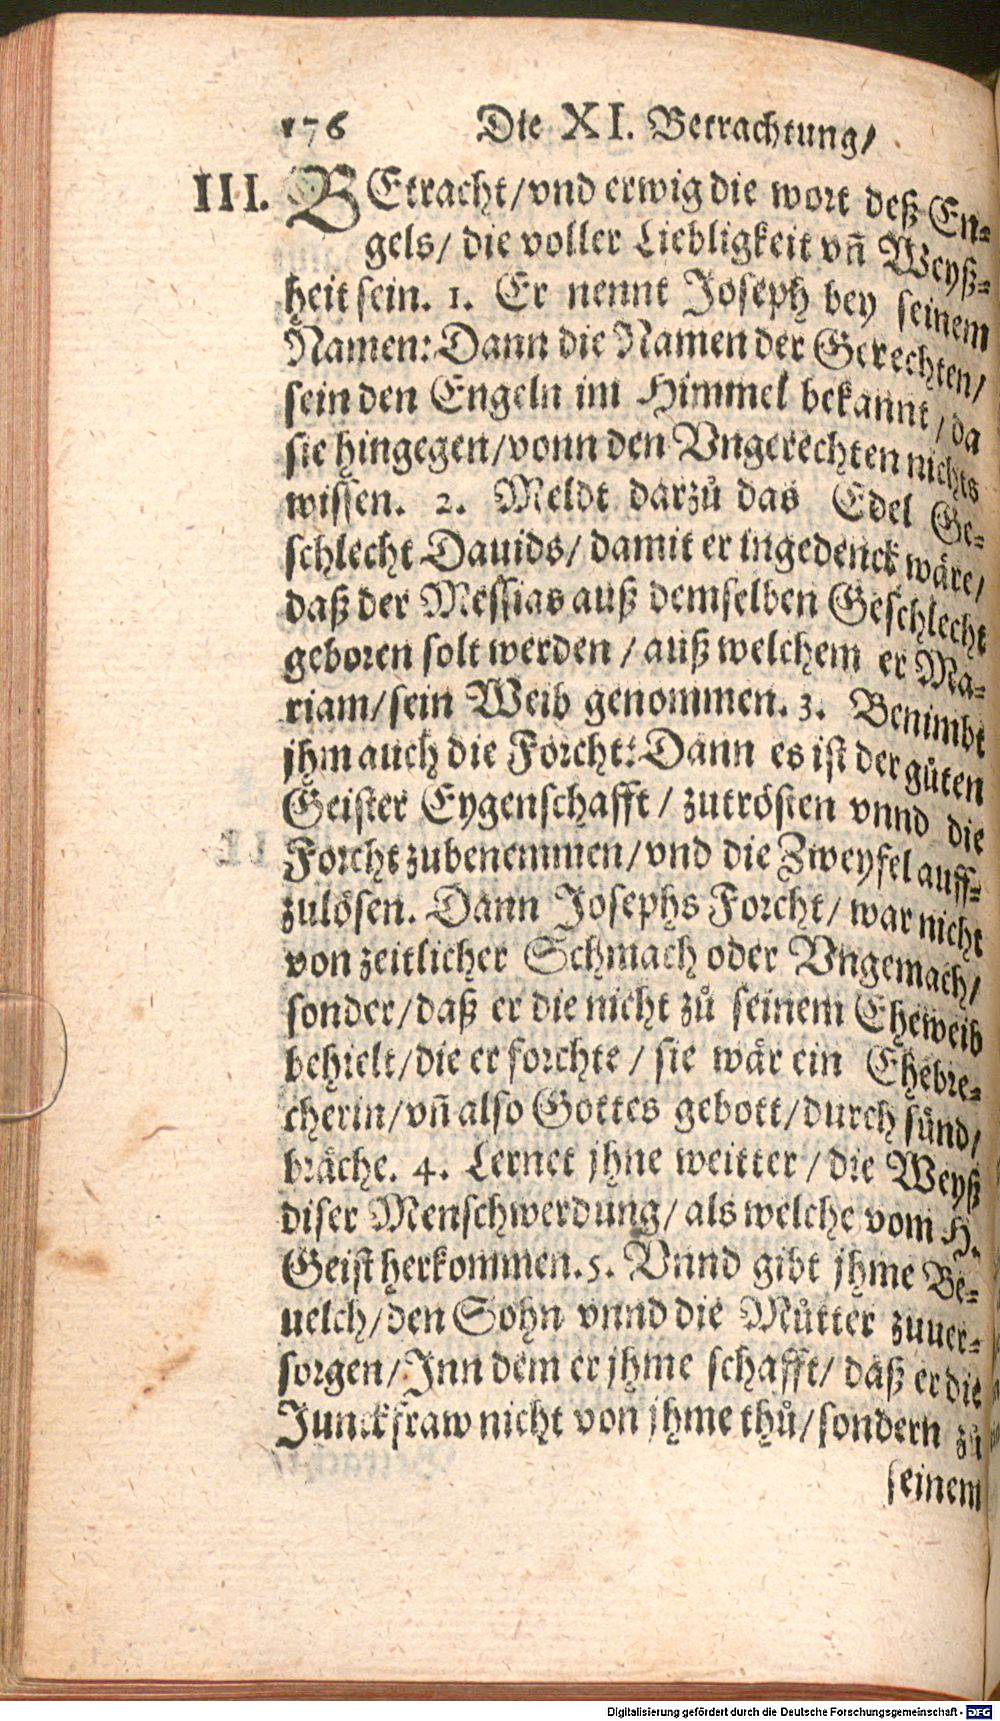 176 Die XI. Betrachtung/
III. BEtracht/vnd erwig die wort deß En-
gels/ die voller Liebligkeit vñ Weyß-
heit sein. 1. Er nennt Joseph bey seinem
Namen: Dann die Namen der Gerechten/
sein den Engeln im Himmel bekannt/da
sie hingegen/vonn den Vngerechten nichts
wissen. 2. Meldt darzů das Edel Ge-
schlecht Dauids/ damit er ingedenck wäre/
daß der Messias auß demselben Geschlecht
geboren solt werden / auß welchem er Ma-
riam/sein Weib genommen. 3. Benimbt
jhm auch die Forcht: Dann es ist der gůten
Geister Eygenschafft / zutrösten vnnd die
Forcht zubenemmen/vnd die Zweyfel auff-
zulösen. Dann Josephs Forcht/ war nicht
von zeitlicher Schmach oder Vngemach/
sonder/daß er die nicht zů seinem Eheweib
behielt/die er forchte / sie wär ein Ehebre-
cherin/vñ also Gottes gebott/durch sünd/
bräche. 4. Lernet jhne weitter / die Weyß
diser Menschwerdung/ als welche vom H.
Geist herkommen. 5. Vnnd gibt jhme Be-
uelch/den Sohn vnnd die Můtter zuuer-
sorgen/Inn dem er jhme schafft/ daß er die
Junckfraw nicht von jhme thů/sondern zů
seinem
Digitalisierung gefördert durch die Deutsche Forschungsgemeinschaft - DFG